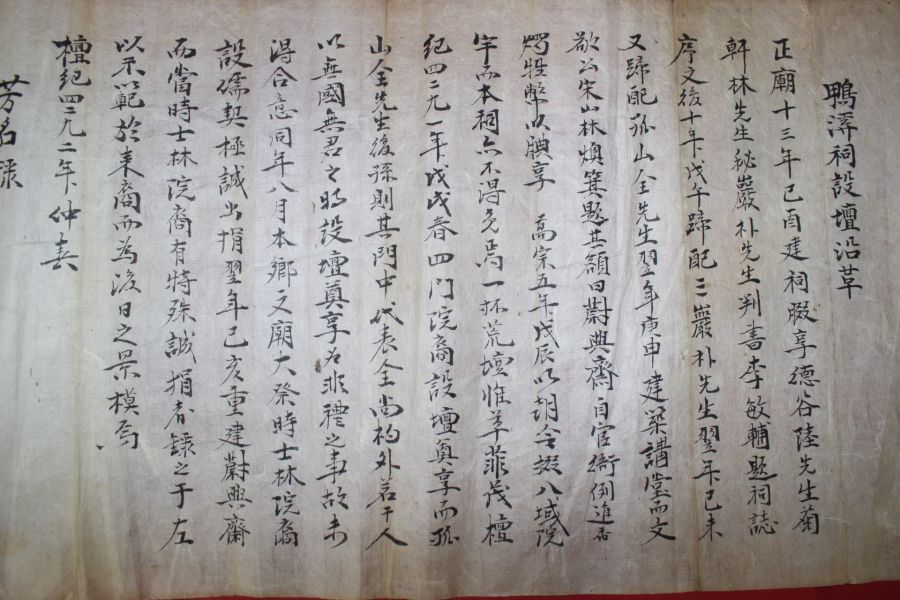 鴨溪祠設壇沿革
正廟十三年己酉建祠腏享德谷陸先生菊
軒林先生秘巖朴先生判書李敏輔題祠誌
序文後十年戊午躋配三巖朴先生翌年己未
又躋配孤山全先生翌年庚申建築講堂而文
敬公宋山林煥箕題其額曰蔚興齋自官衙例進香
燭牲幣以腆享 高宗五年戊辰以胡令掇八域院
宇而本祠亦不得免焉一抔荒壇惟草菲茂檀
紀四二九一年戊戌春四門院裔設壇奠享而孤
山全先生後孫則其門中代表全尚杓外若干人
以無國無君之時設壇奠享名非禮之事故未
得合意同年八月本鄉文廟大祭時士林院裔
設儒契極誠出捐翌年己亥重建蔚興齋
而當時士林院裔有特殊誠捐者錄之于左
以示以範於來裔而為後日之景模焉
檀紀四二九二年 仲春
芳名錄